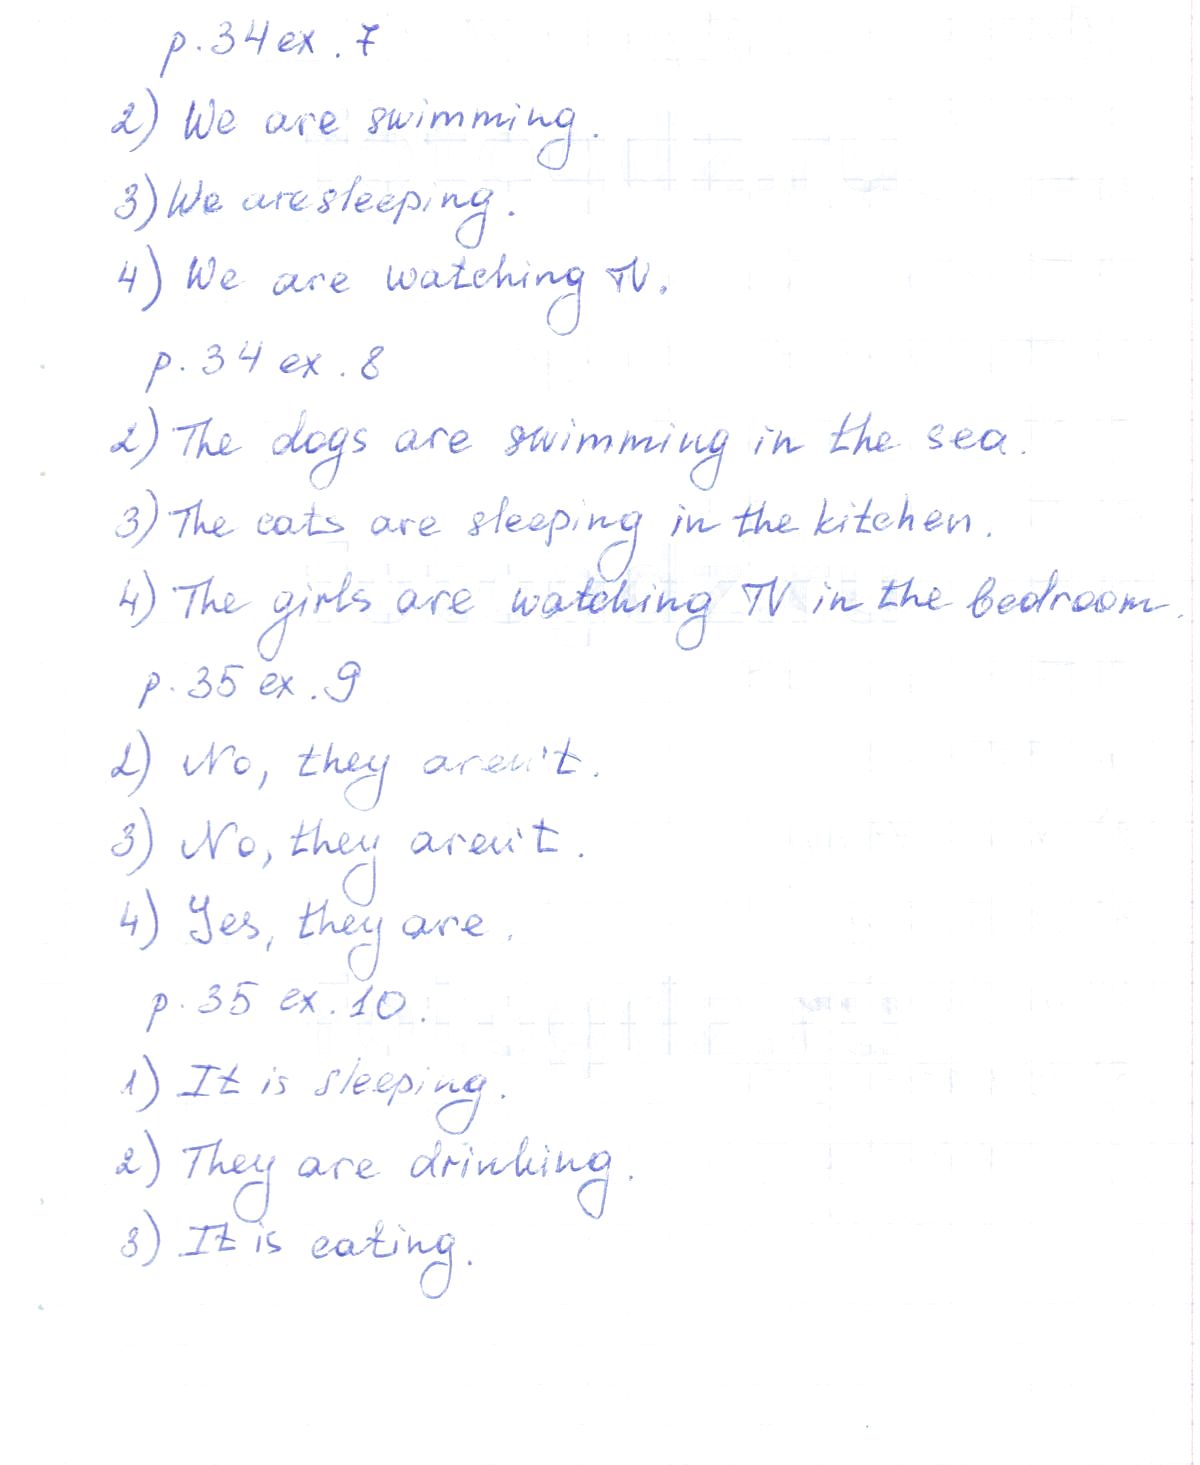 p. 34 ex. 7
2) We are swimming.
3) We are sleeping.
4) We are watching TV.
p. 34 ex. 8
2) The dogs are swimming in the sea.
3) The cats are sleeping in the kitchen.
4) The girls are watching TV in the bedroom.
p. 35 ex. 9
2) No, they aren't.
3) No, they aren't.
4) Yes, they are.
p. 35 ex. 10.
1) It is sleeping.
2) They are drinking.
3) It is eating.